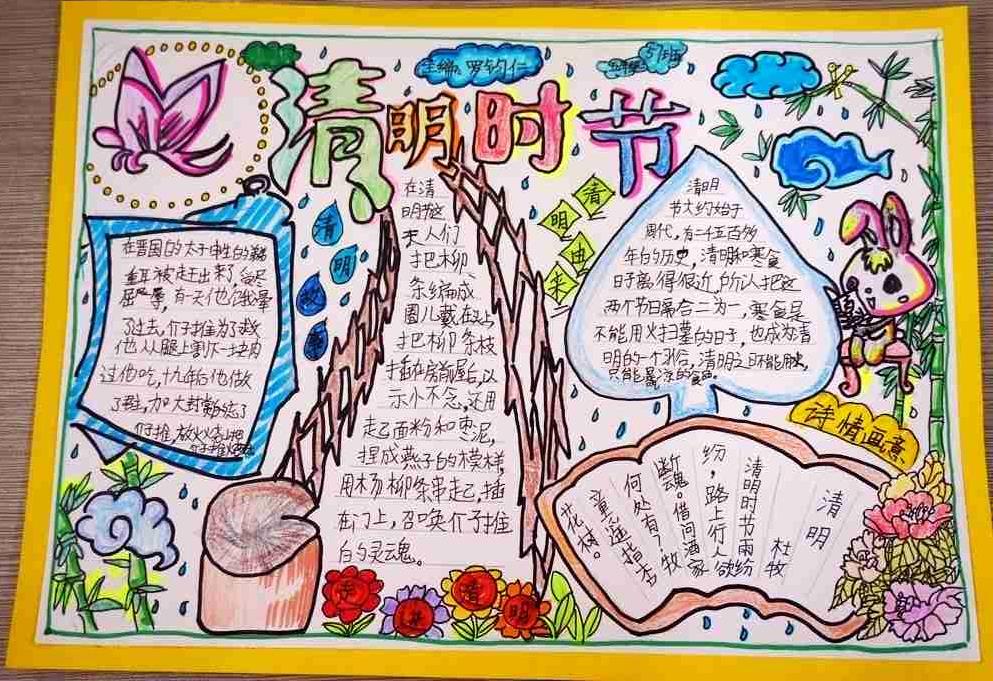 清明时节
主编：罗钧仁
51班
清明
由来
清明
故事
在晋国的太子申生的弟
重耳被赶出来了，
有一天他饿晕
了过去，介子推为了救
他，从腿上割下一块肉
过他吃，十九年后他做
了君主，加大封赏忘了
介子推，放火烧山把
在清
明节这
天人们
把柳
条编成
圈儿戴在头上
把柳条枝
插在房前屋后，以
示怀念，还用
起面粉和枣泥，
捏成燕子的模样，
用杨柳条串起，插
在门上，召唤介子推
的灵魂。
清明
节大约始于
周代，有二千五百多
年的历史，清明和寒食
日子离得很近，所以把这
两个节日离合二为一，寒食是
不能用火扫墓的日子，也成为清
明的一个习俗，清明之日不能用火，
只能吃凉的食品。
诗情画意
清明
杜牧
清明时节雨纷
纷，路上行人欲
断魂。借问酒家
何处有？牧
童遥指杏
花村。
走
进
清
明